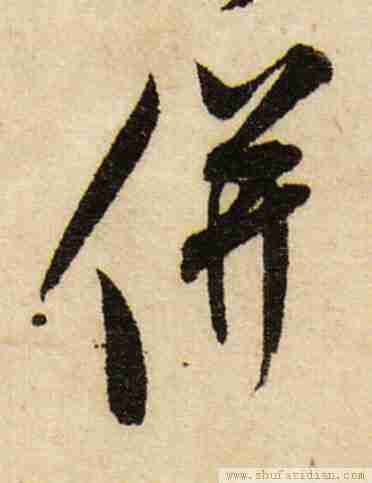 併
www.shufazidian.com